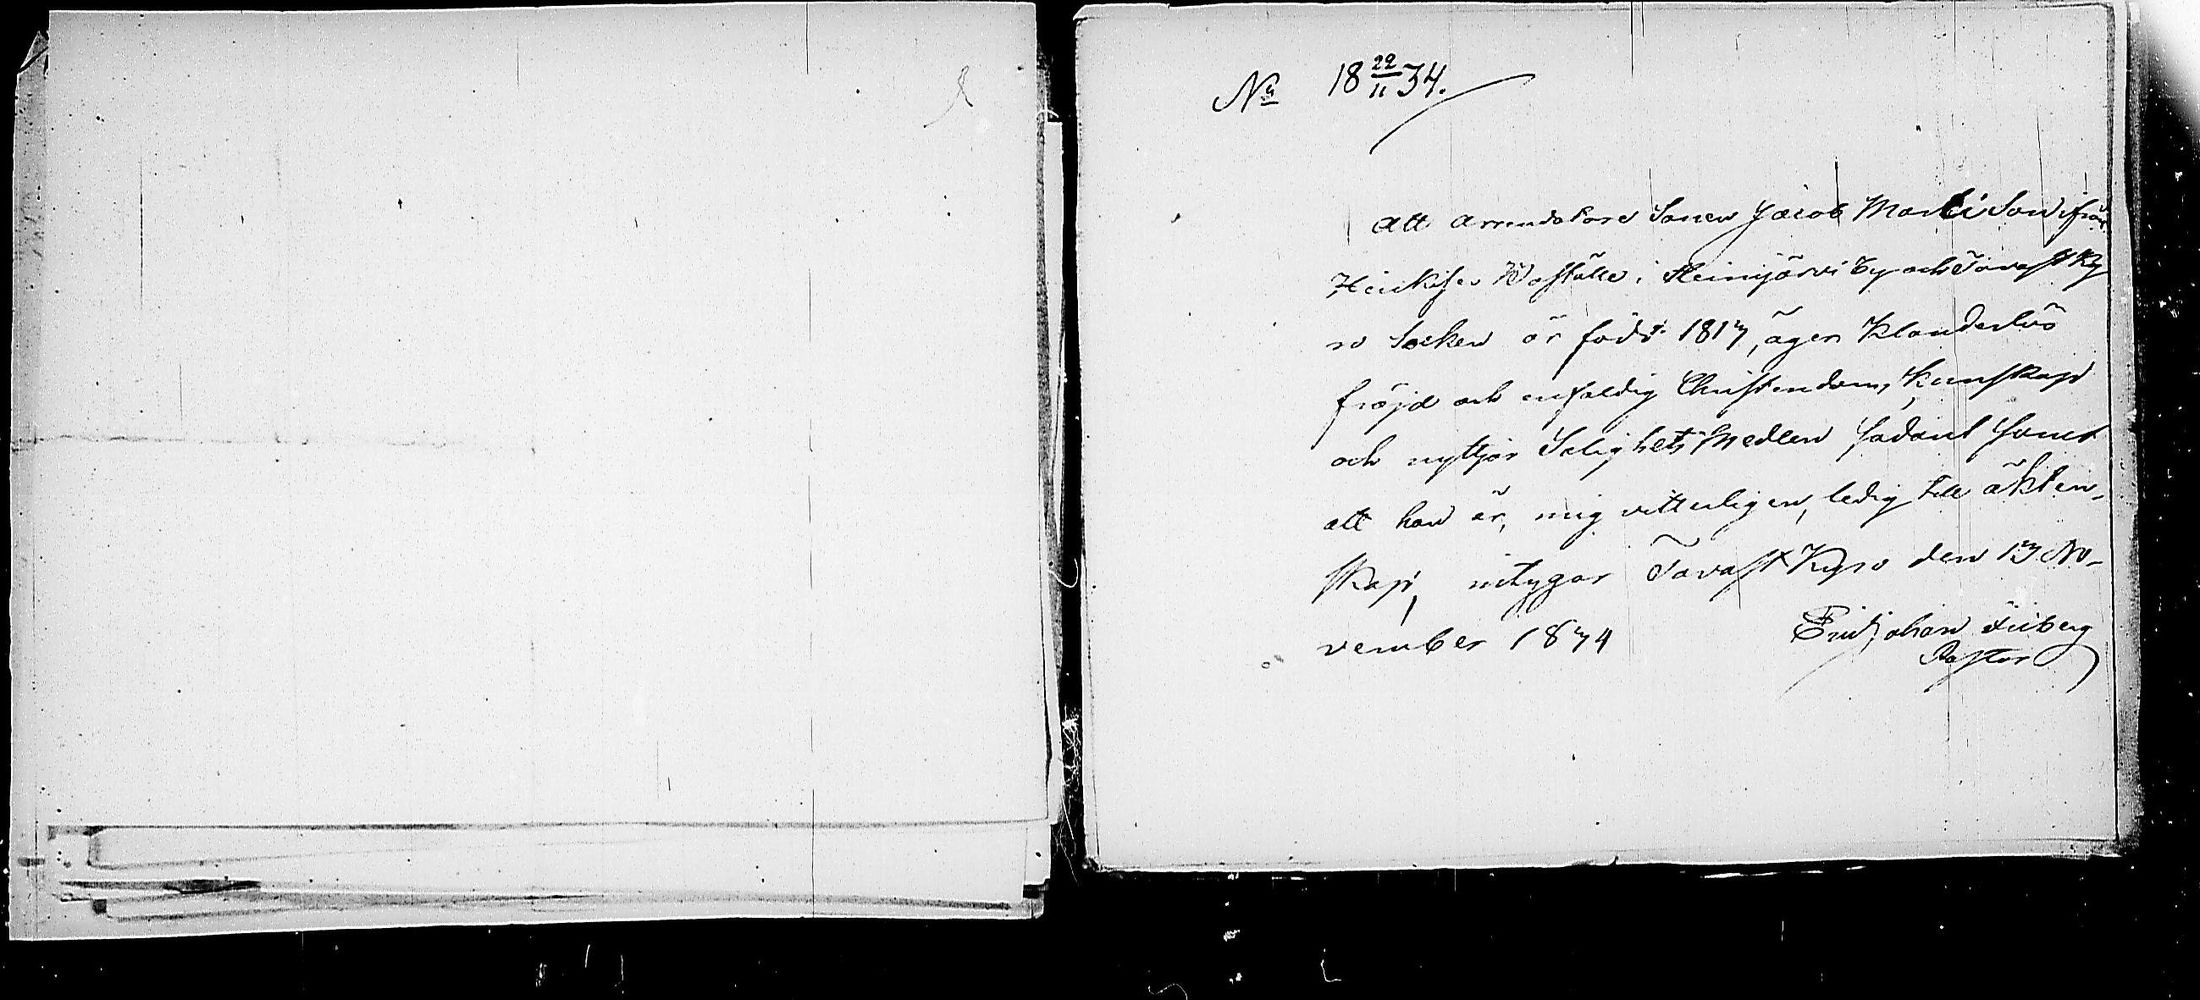 No 18 22/11 34.
Att Arrendatore Sonen Jacob Marti Son ifrån
Heinijärvi by och Tavast Ky
ro Socken är född 1817, äger Klanderlös
fräjd och enfaldig Christendoms Kunskap
och nyttjar Salighets Medlen sådant samt
att han är, mig vitterligen, ledig till äkten-
skap, intygar Tavast Kyro den 13 No-
vember 1834
Johan
Pastor